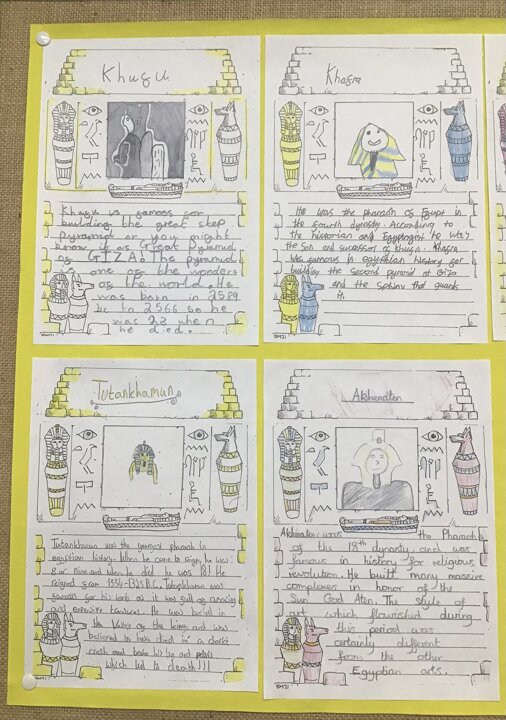 Khufu
Khufu is famous for
building the great step
pyramid or you might
know it as Great pyramid
of GIZA. The pyramid
is one of the wonders
of the world. He
was born in 2589
bc to 2566 so he
was 23 when
he died.
Khafra
He was the pharaoh of Egypt in
the fourth dynasty. According to
the historian and Egyptologist he was
the Son and successor of Khufu. Khafra
was famous in egyptian history for
building the second pyramid at Giza
and the sphinx that guards
it.
Tutankhamun
Tutankhamun was the youngest pharaoh in
egyptian history. When he came to reign, he was
8 or nine and when he died he was 18! He
reigned from 1334-1323 B.C. Tutankhamun was
famous for his tomb as it was full of amazing
and expensive treasures. He was buried in
the Valley of the kings and was
believed to have died in a chariot
crash and broke his leg and pelvis
which led to death!!!
BM21
Akhenaten
Akhenaten was the Pharaoh
of the 18th dynasty and was
famous in history for religious
revolution. He built many massive
complexes in honor of the
Sun God Aten. The style of
art which flourished during
this period was
certainly different
from the other
Egyptian arts.
BM21